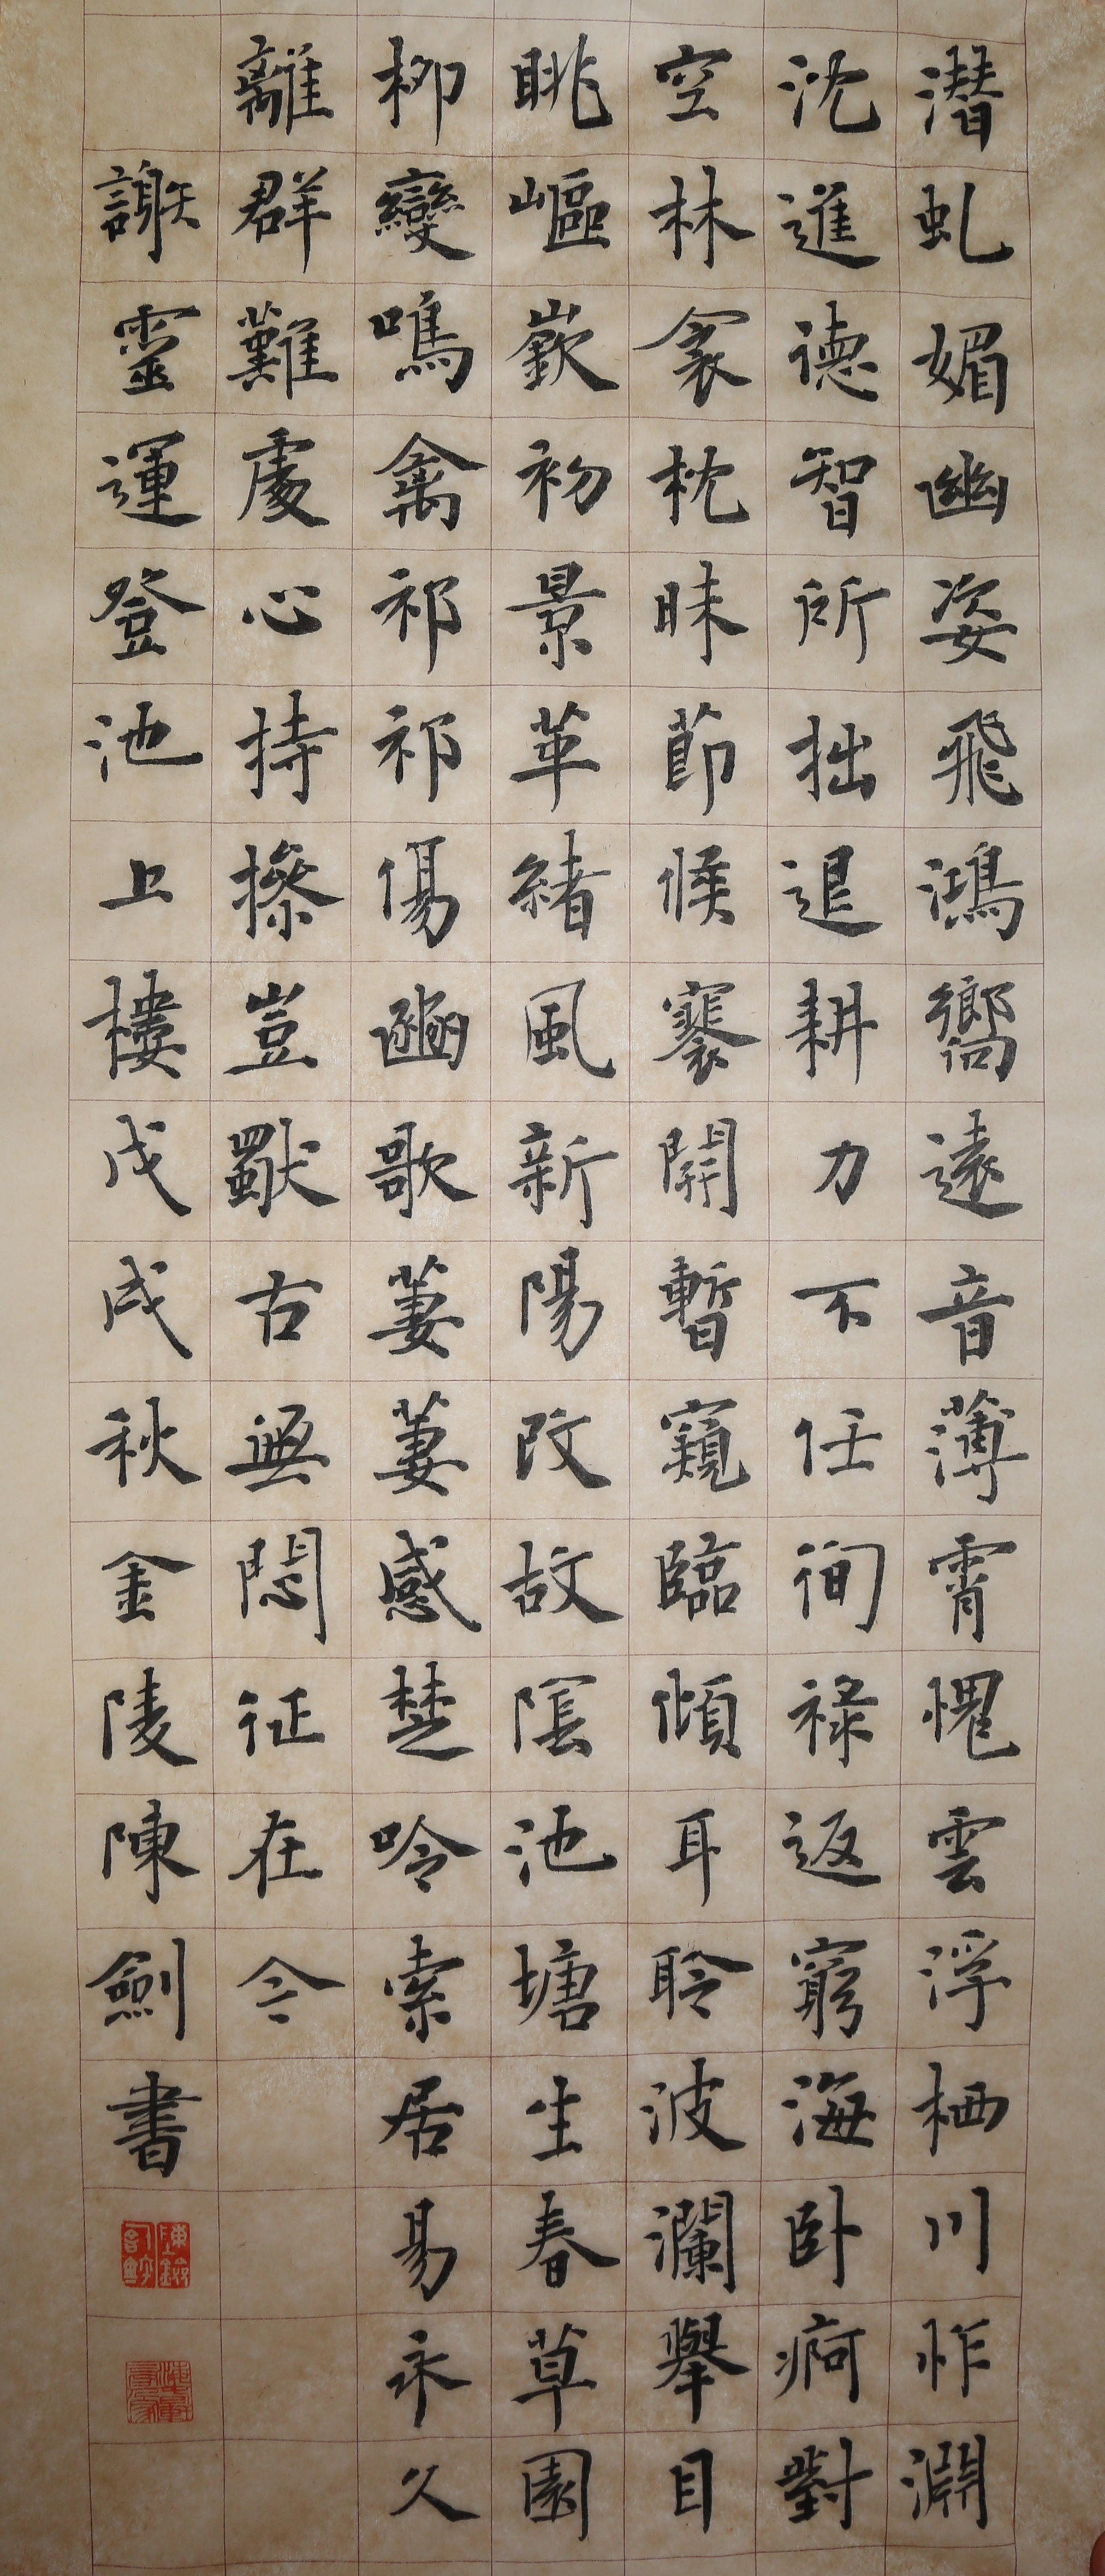 潛虬媚幽姿飛鴻響遠音薄霄愧雲浮栖川怍淵
沈進德智所拙退耕力不任徇祿返窮海卧痾對
空林衾枕昧節候褰開暫窺臨傾耳聆波瀾舉目
眺嶇嶔初景革緒風新陽改故陰池塘生春草園
柳變鳴禽祁祁傷豳歌萋萋感楚吟索居易永久
離群難處心持操豈獨古無悶征在今
謝靈運登池上樓戊戌秋金陵陳劍書